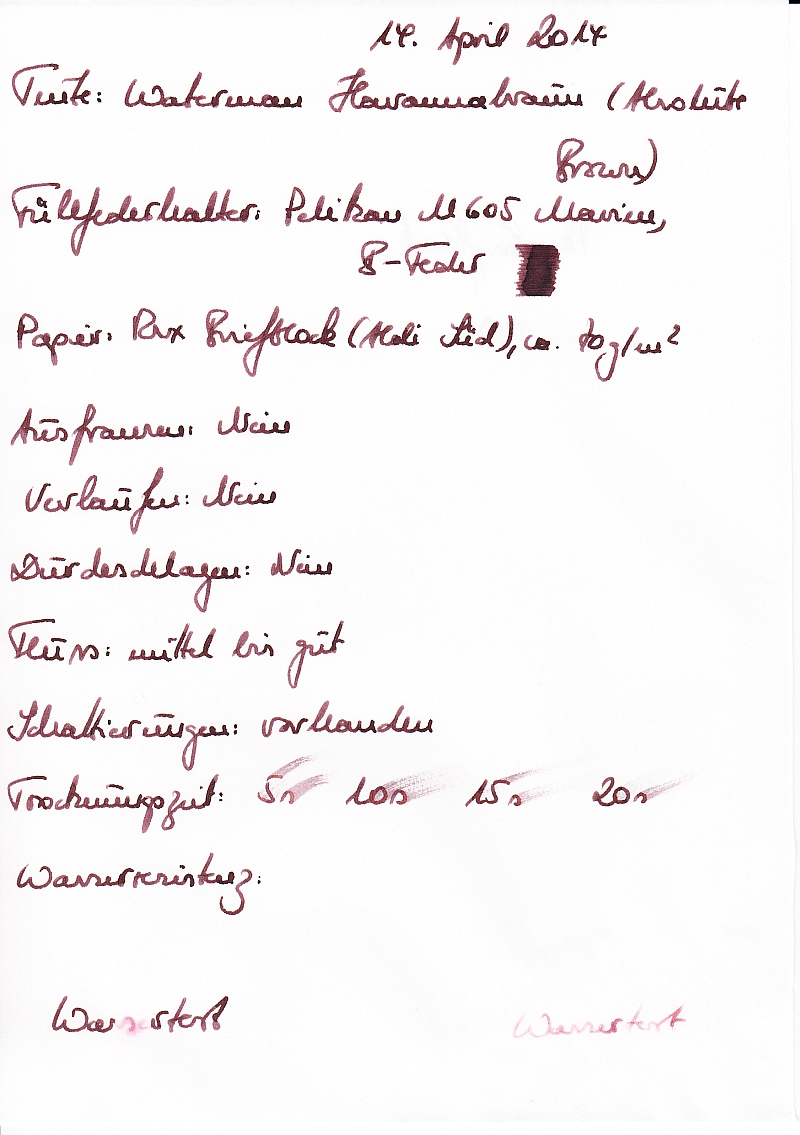 14. April 2014
Tinte: Waterman Havannabraun (Absolute
Brown)
Füllfederhalter: Pelikan M605 Marine,
B-Feder
Papier: Rex Briefblock (Aldi Süd), ca. 70g/m²
Ausfransen: Nein
Verlaufen: Nein
Durchschlagen: Nein
Fluss: mittel bis gut
Schattierungen: vorhanden
Trocknungszeit: 5s 10s 15s 20s
Wasserresistenz:
Wassertest Wassertest